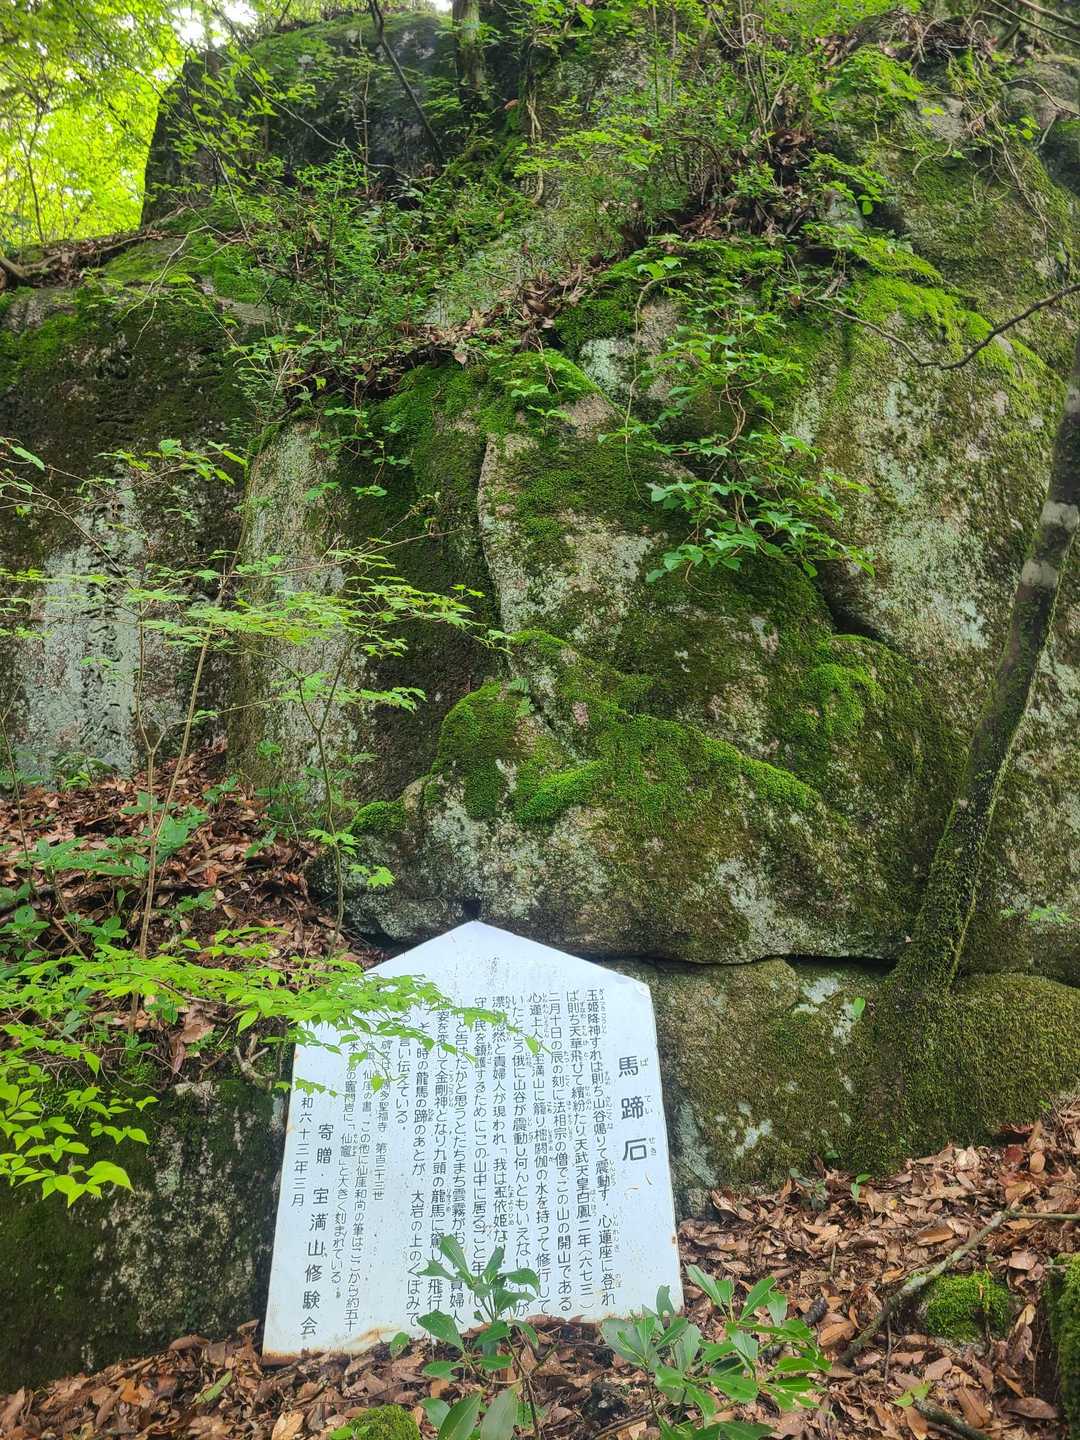 馬蹄石
ばていせき
玉姫降神すれば則ち山谷鳴りて震動す、心蓮座に登れ
ば則ち天華飛びて繽紛たり天武天皇白鳳二年(六七三)
二月十日の辰の刻に法相宗の僧でこの山の開山である
心蓮上人が宝満山に籠り樒閼伽の水を持って修行して
いたところ俄に山谷が震動し何んともいえない
が
漂い忽然と貴婦人が現われ「我は玉依姫な
守り民を鎮護するためにこの山中に居ること年
」と告げたかと思うとたちまち雲霧がお
貴婦人
姿を変じて金剛神となり九頭の龍馬に駕し
飛行
その時の龍馬の蹄のあとが、大岩の上のくぼみで
言い伝えている。
聖福寺 第百二十三世
仙厓の書、この他に仙厓和尚の筆はここから約五十
の竈門岩に「仙竈」と大きく刻まれている。
和六十三年三月
寄贈・宝満山修験会